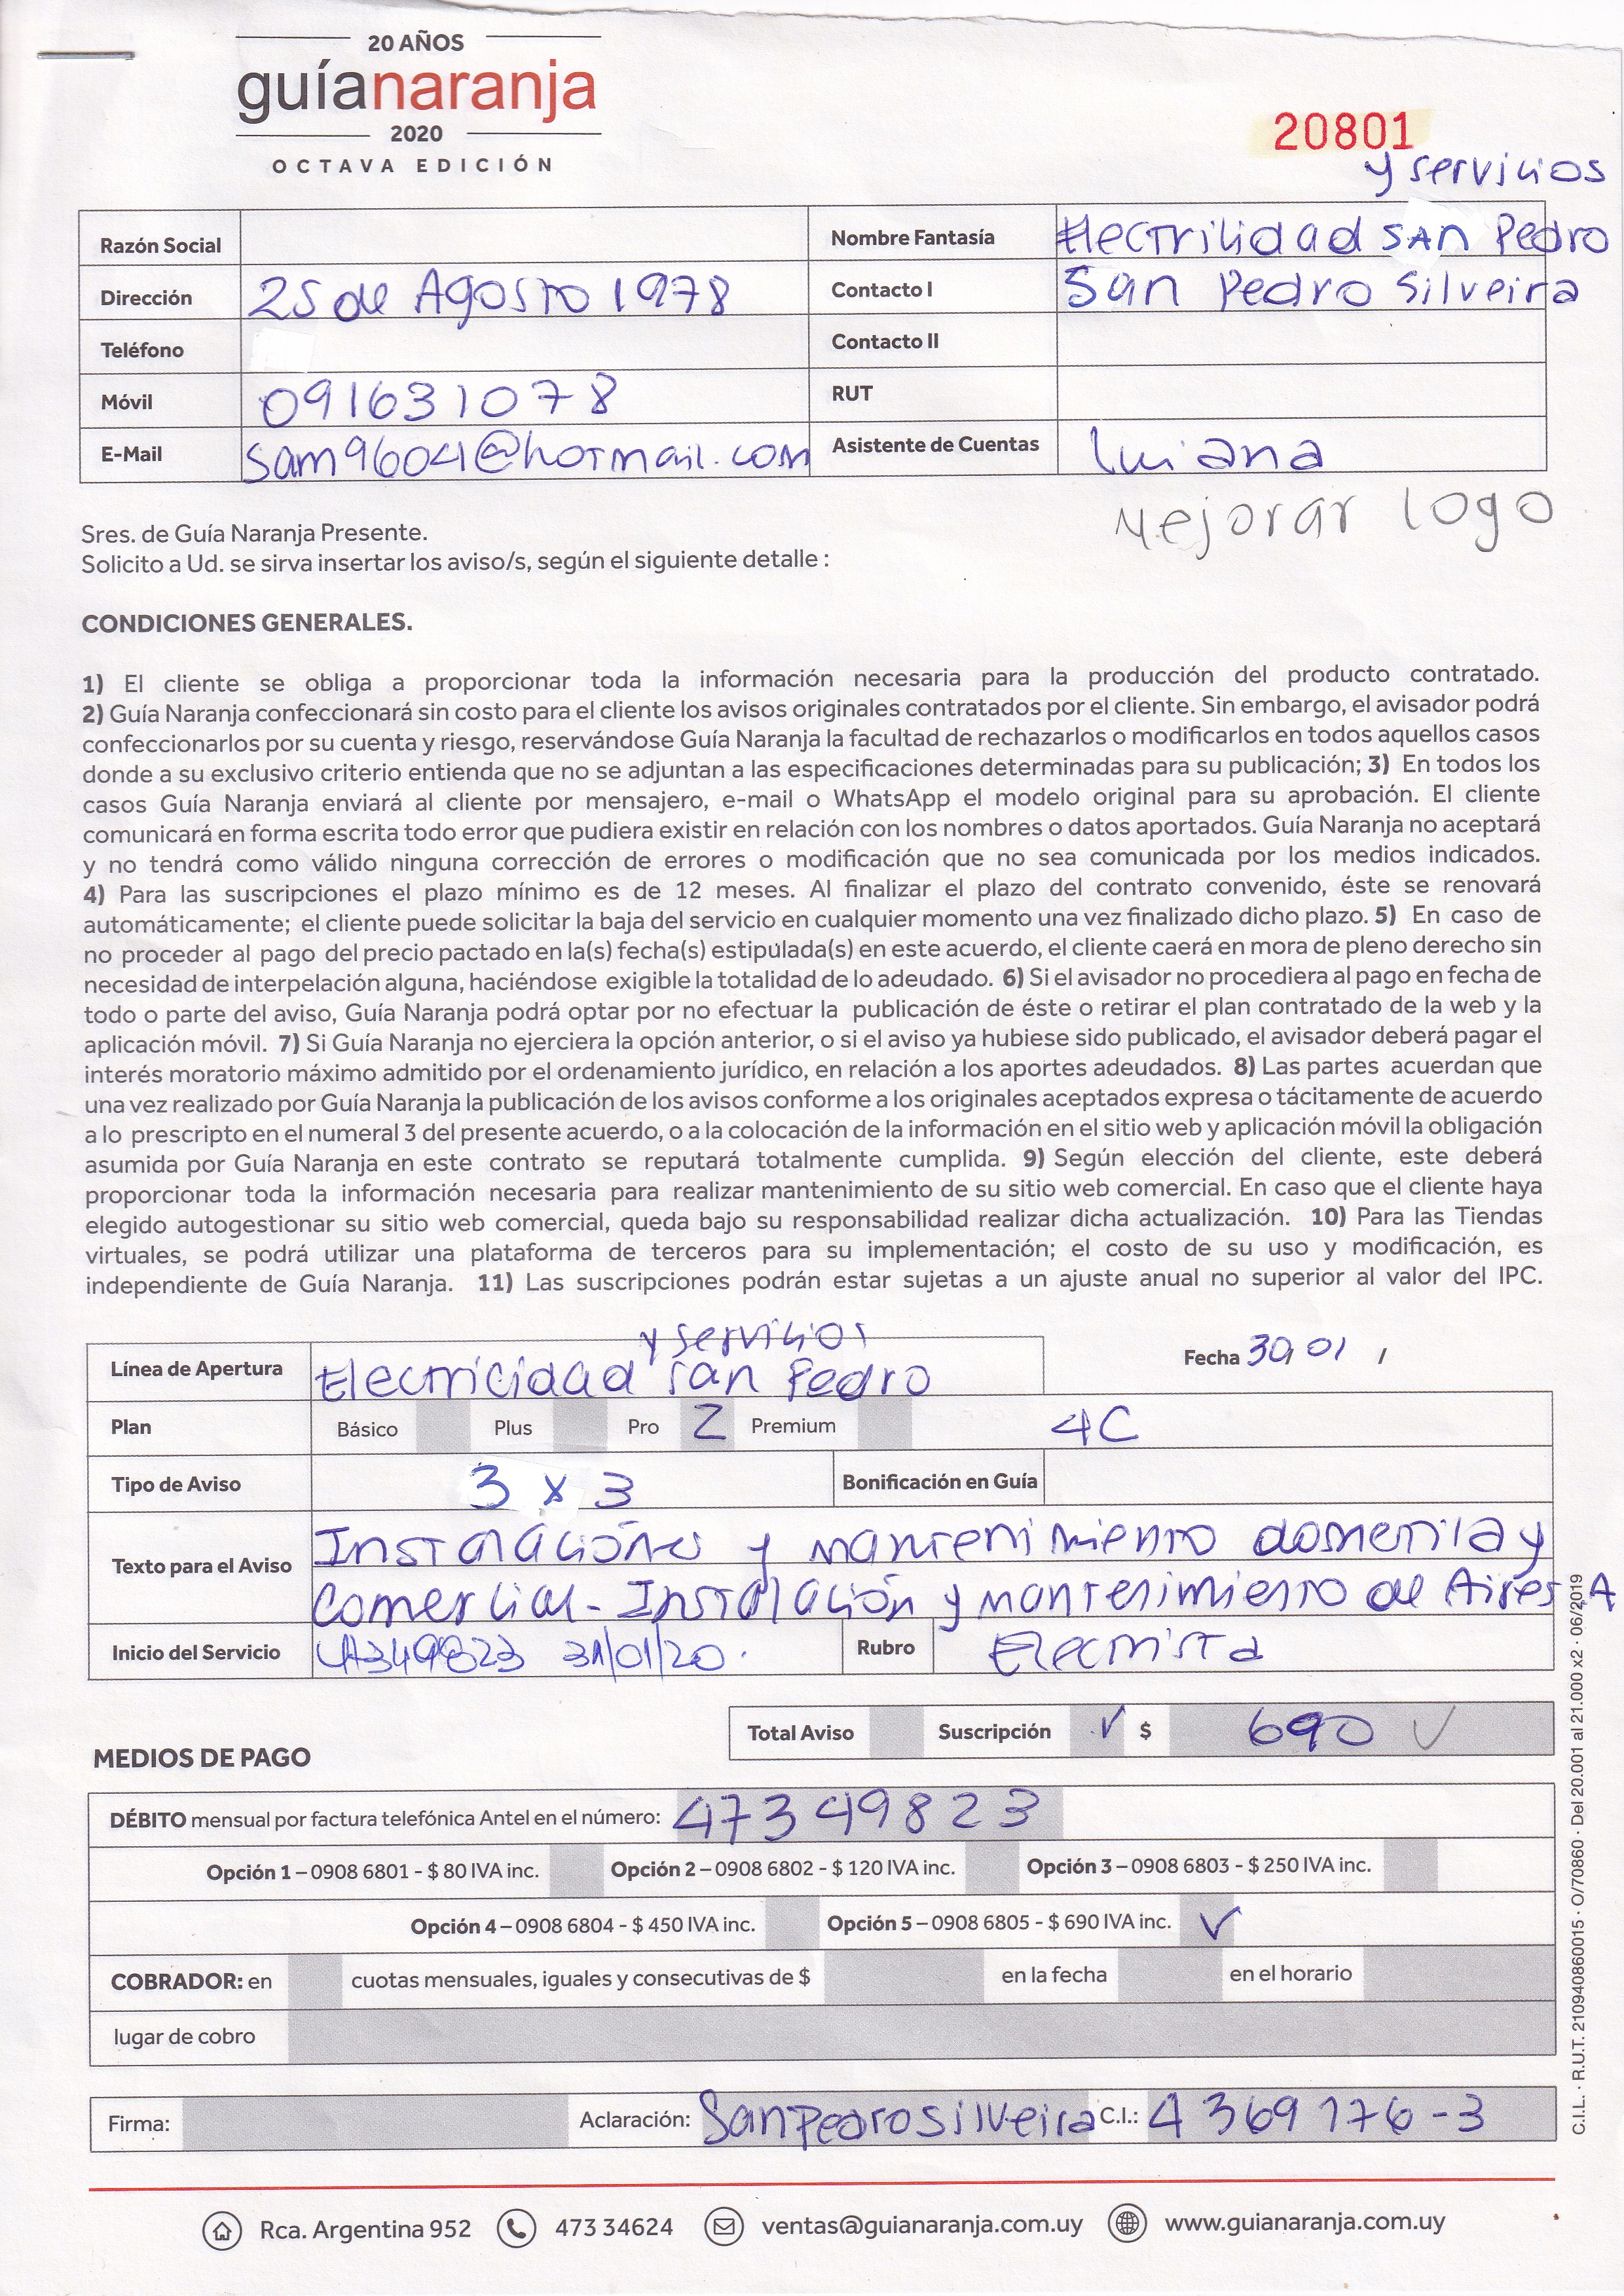 20 AÑOS
guíanaranja
2020
OCTAVA EDICIÓN
20801
y servicios
Razón Social
Nombre Fantasía Electricidad SAN Pedro
Dirección 25 de Agosto 1978
Contacto I San Pedro Silveira
Teléfono
Contacto II
Móvil 091631078
RUT
E-Mail sam9604@hotmail.com
Asistente de Cuentas Luciana
Mejorar logo
Sres. de Guía Naranja Presente.
Solicito a Ud. se sirva insertar los aviso/s, según el siguiente detalle :
CONDICIONES GENERALES.
1) El cliente se obliga a proporcionar toda la información necesaria para la producción del producto contratado.
2) Guía Naranja confeccionará sin costo para el cliente los avisos originales contratados por el cliente. Sin embargo, el avisador podrá
confeccionarlos por su cuenta y riesgo, reservándose Guía Naranja la facultad de rechazarlos o modificarlos en todos aquellos casos
donde a su exclusivo criterio entienda que no se adjuntan a las especificaciones determinadas para su publicación; 3) En todos los
casos Guía Naranja enviará al cliente por mensajero, e-mail o WhatsApp el modelo original para su aprobación. El cliente
comunicará en forma escrita todo error que pudiera existir en relación con los nombres o datos aportados. Guía Naranja no aceptará
y no tendrá como válido ninguna corrección de errores o modificación que no sea comunicada por los medios indicados.
4) Para las suscripciones el plazo mínimo es de 12 meses. Al finalizar el plazo del contrato convenido, éste se renovará
automáticamente; el cliente puede solicitar la baja del servicio en cualquier momento una vez finalizado dicho plazo. 5) En caso de
no proceder al pago del precio pactado en la(s) fecha(s) estipulada(s) en este acuerdo, el cliente caerá en mora de pleno derecho sin
necesidad de interpelación alguna, haciéndose exigible la totalidad de lo adeudado. 6) Si el avisador no procediera al pago en fecha de
todo o parte del aviso, Guía Naranja podrá optar por no efectuar la publicación de éste o retirar el plan contratado de la web y la
aplicación móvil. 7) Si Guía Naranja no ejerciera la opción anterior, o si el aviso ya hubiese sido publicado, el avisador deberá pagar el
interés moratorio máximo admitido por el ordenamiento jurídico, en relación a los aportes adeudados. 8) Las partes acuerdan que
una vez realizado por Guía Naranja la publicación de los avisos conforme a los originales aceptados expresa o tácitamente de acuerdo
a lo prescripto en el numeral 3 del presente acuerdo, o a la colocación de la información en el sitio web y aplicación móvil la obligación
asumida por Guía Naranja en este contrato se reputará totalmente cumplida. 9) Según elección del cliente, este deberá
proporcionar toda la información necesaria para realizar mantenimiento de su sitio web comercial. En caso que el cliente haya
elegido autogestionar su sitio web comercial, queda bajo su responsabilidad realizar dicha actualización. 10) Para las Tiendas
virtuales, se podrá utilizar una plataforma de terceros para su implementación; el costo de su uso y modificación, es
independiente de Guía Naranja. 11) Las suscripciones podrán estar sujetas a un ajuste anual no superior al valor del IPC.
y servicios
Línea de Apertura Electricidad San Pedro
Fecha 30/ 01 /
Plan Básico Plus Pro Z Premium 4C
Tipo de Aviso 3 x 3 Bonificación en Guía
Texto para el Aviso Instalaciones y mantenimiento domestica y
Comercial - Instalación y mantenimiento de Aires A
Inicio del Servicio 47349823 31/01/20. Rubro Electrista
Total Aviso Suscripción ✓ $ 690 ✓
MEDIOS DE PAGO
DÉBITO mensual por factura telefónica Antel en el número: 47349823
Opción 1 – 0908 6801 - $ 80 IVA inc. Opción 2 – 0908 6802 - $ 120 IVA inc. Opción 3 – 0908 6803 - $ 250 IVA inc.
Opción 4 – 0908 6804 - $ 450 IVA inc. Opción 5 – 0908 6805 - $ 690 IVA inc. ✓
COBRADOR: en cuotas mensuales, iguales y consecutivas de $ en la fecha en el horario
lugar de cobro
Firma: Aclaración: San Pedro Silveira C.I.: 4 369 176-3
C.I.L. · R.U.T. 210940860015 · O/70860 · Del 20.001 al 21.000 x2 · 06/2019
Rca. Argentina 952 473 34624 ventas@guianaranja.com.uy www.guianaranja.com.uy